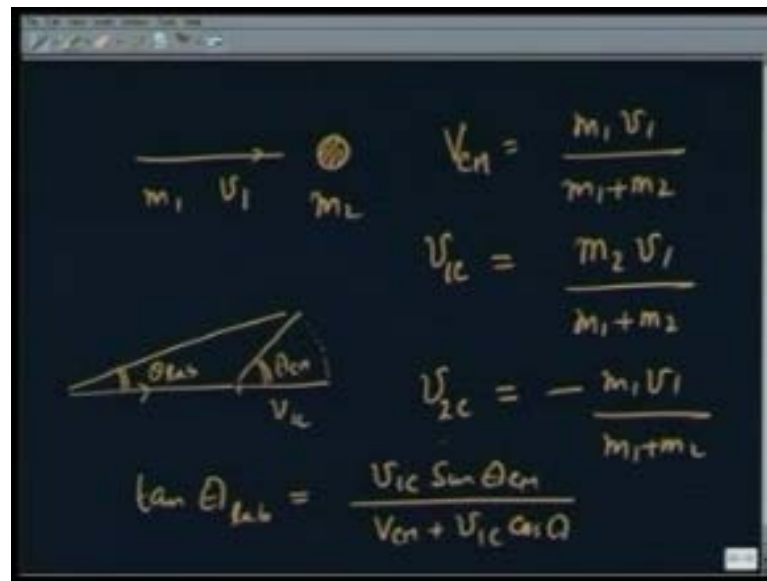 m₁ v₁ m₂
V_cm = m₁ v₁ / m₁+m₂
v₁c = m₂ v₁ / m₁+m₂
θ_lab θ_cm
v₁c
v₂c = − m₁ v₁ / m₁+m₂
tan θ_lab = v₁c Sin θ_cm / V_cm + v₁c Cos θ